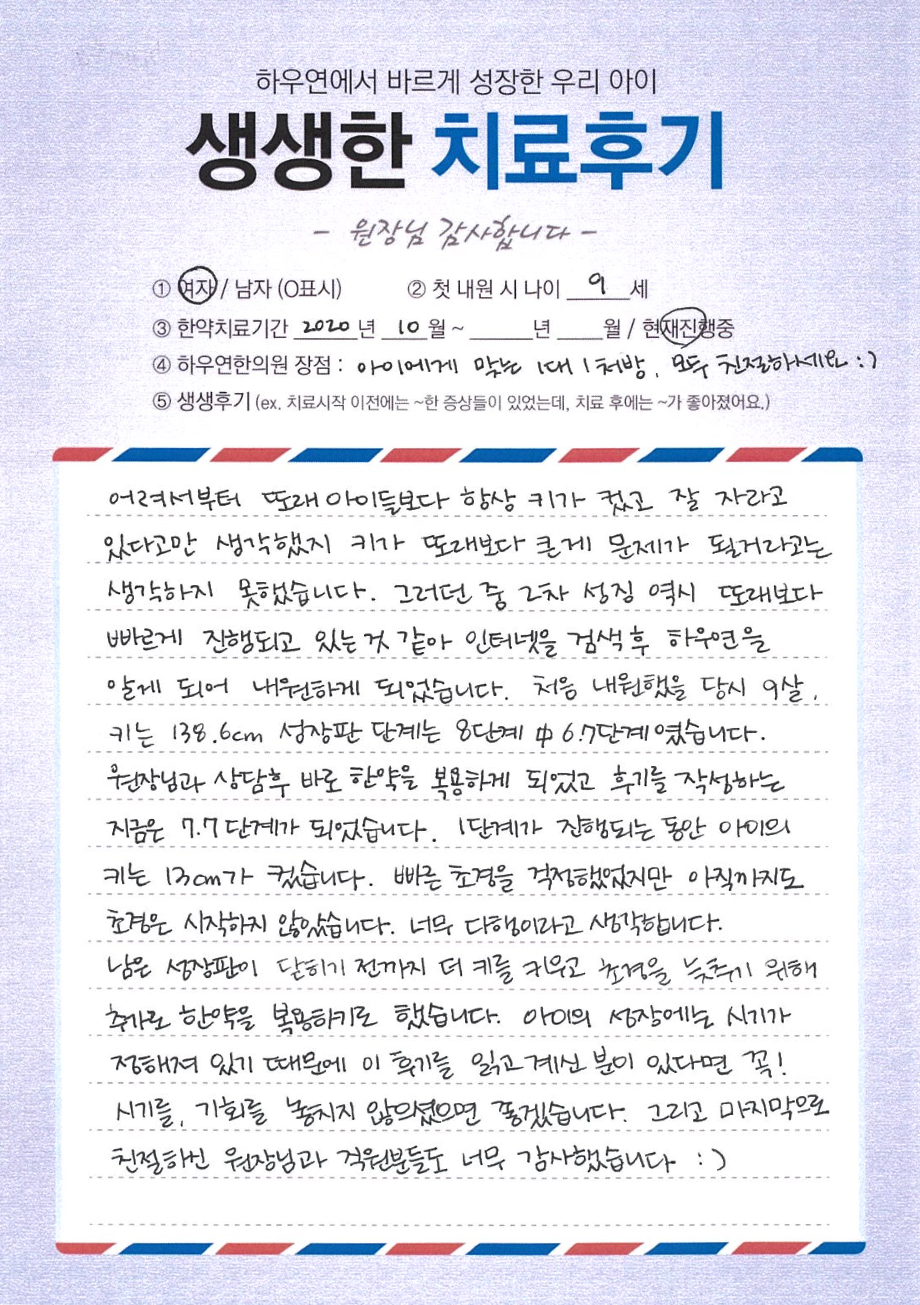 하우연에서 바르게 성장한 우리 아이
생생한 치료후기
- 원장님 감사합니다 -
① 여자 / 남자 (O표시) ② 첫 내원 시 나이 9 세
③ 한약치료기간 2020 년 10 월 ~ ____년 ____월 / 현재진행중
④ 하우연한의원 장점 : 아이에게 맞는 1대 1 처방, 모두 친절하세요 :)
⑤ 생생후기 (ex. 치료시작 이전에는 ~한 증상들이 있었는데, 치료 후에는 ~가 좋아졌어요.)
어려서부터 또래 아이들보다 항상 키가 컸고 잘 자라고
있다고만 생각했지 키가 또래보다 큰게 문제가 될거라고는
생각하지 못했습니다. 그러던 중 2차 성징 역시 또래보다
빠르게 진행되고 있는 것 같아 인터넷을 검색 후 하우연을
알게 되어 내원하게 되었습니다. 처음 내원했을 당시 9살,
키는 138.6cm 성장판 단계는 8단계 中 6.7단계였습니다.
원장님과 상담후 바로 한약을 복용하게 되었고 후기를 작성하는
지금은 7.7단계가 되었습니다. 1단계가 진행되는 동안 아이의
키는 13cm가 컸습니다. 빠른 초경을 걱정했었지만 아직까지도
초경은 시작하지 않았습니다. 너무 다행이라고 생각합니다.
남은 성장판이 닫히기 전까지 더 키를 키우고 초경을 늦추기 위해
추가로 한약을 복용하기로 했습니다. 아이의 성장에는 시기가
정해져 있기 때문에 이 후기를 읽고 계신 분이 있다면 꼭!
시기를, 기회를 놓치지 않으셨으면 좋겠습니다. 그리고 마지막으로
친절하신 원장님과 직원분들도 너무 감사했습니다 :)